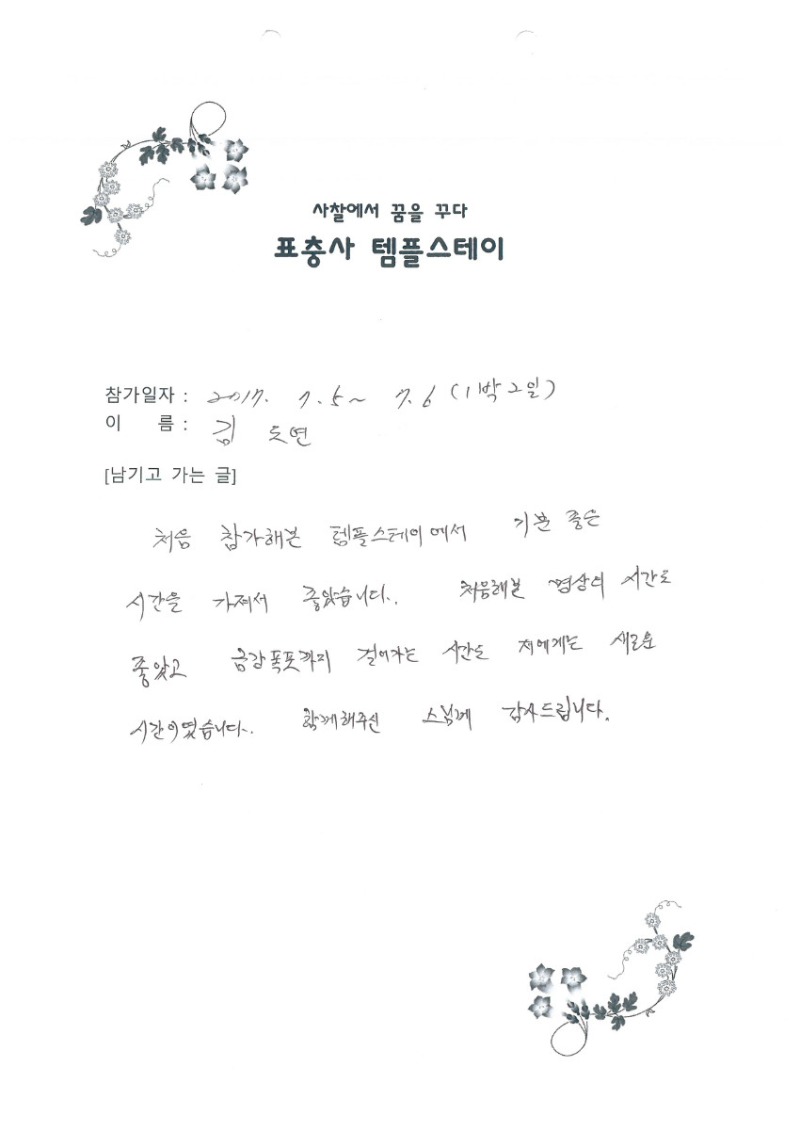 사찰에서 꿈을 꾸다
표충사 템플스테이
참가일자 : 2017. 7. 5 ~ 7. 6 (1박 2일)
이 름 : 김 도연
[남기고 가는 글]
처음 참가해본 템플스테이에서 기분 좋은
시간을 가져서 좋았습니다. 처음해본 명상의 시간도
좋았고 금강폭포까지 걸어가는 시간도 저에게는 새로운
시간이였습니다. 함께해주신 스님께 감사드립니다.